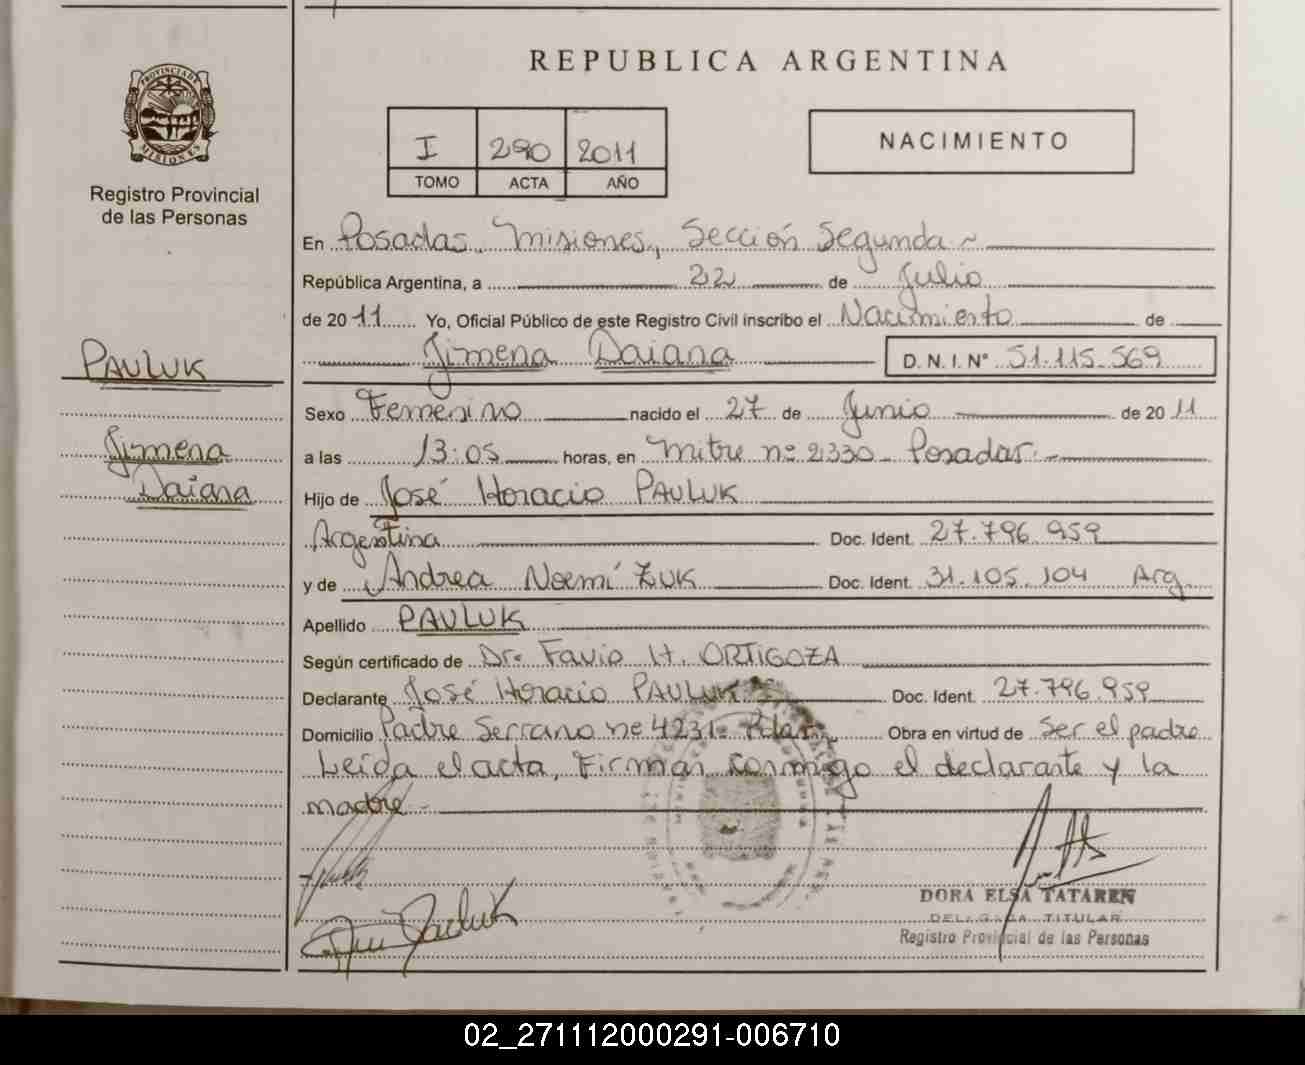 REPUBLICA ARGENTINA
PROVINCIA DE MISIONES
Registro Provincial
de las Personas
I 290 2011
TOMO ACTA AÑO
NACIMIENTO
En Posadas, Misiones, Sección Segunda
República Argentina, a 22 de Julio
de 2011 Yo, Oficial Público de este Registro Civil inscribo el Nacimiento de
Jimena Daiana D.N.I.Nº 51.115.569
PAULUK
Jimena
Daiana
Sexo Femenino nacido el 27 de Junio de 2011
a las 13:05 horas, en Mitre nº 2330 - Posadas.-
Hijo de José Horacio PAULUK
Argentina Doc. Ident. 27.796.959
y de Andrea Noemí ZUK Doc. Ident. 31.105.104 Arg.
Apellido PAULUK
Según certificado de Dr. Favio H. ORTIGOZA
Declarante José Horacio PAULUK Doc. Ident. 27.796.959
Domicilio Padre Serrano nº 4231- Pdas. Obra en virtud de Ser el padre
Leída el acta, Firman conmigo el declarante y la
madre.-
DORA ELSA TATAREN
DELEGADA TITULAR
Registro Provincial de las Personas
02_271112000291-006710